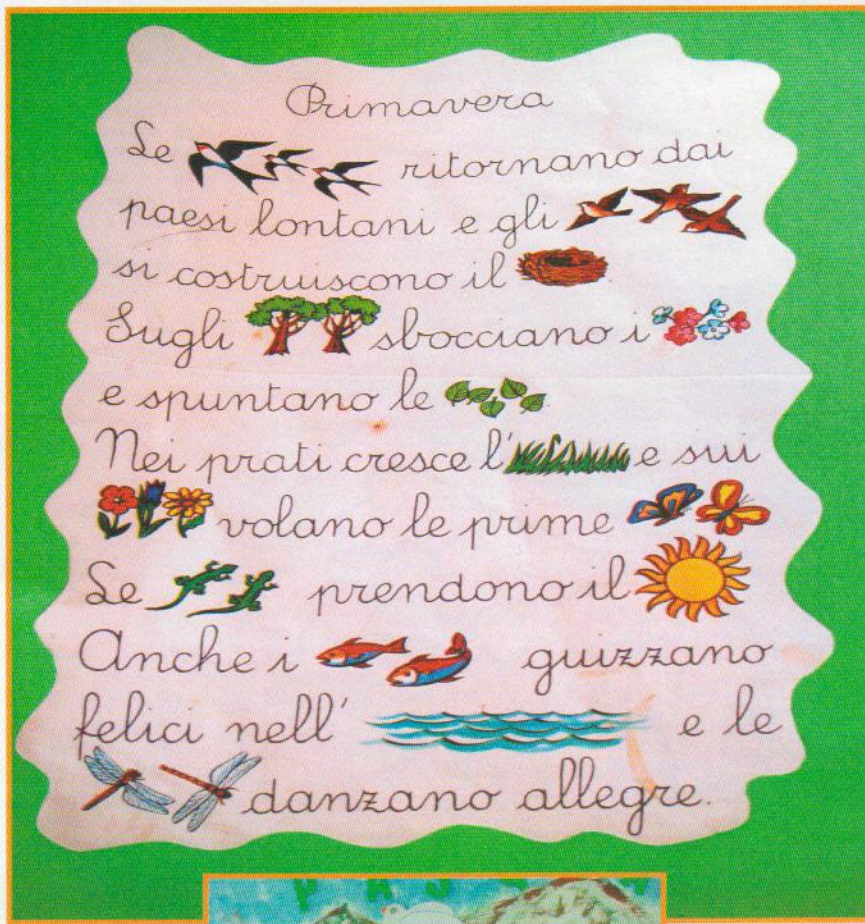 Primavera
Le ritornano dai
paesi lontani e gli
si costruiscono il
Sugli sbocciano i
e spuntano le
Nei prati cresce l' e sui
volano le prime
Le prendono il
Anche i guizzano
felici nell' e le
danzano allegre.